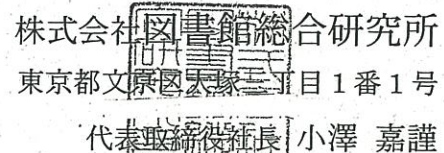 株式会社図書館総合研究所
東京都文京区大塚三丁目1番1号
代表取締役社長 小澤 嘉謹